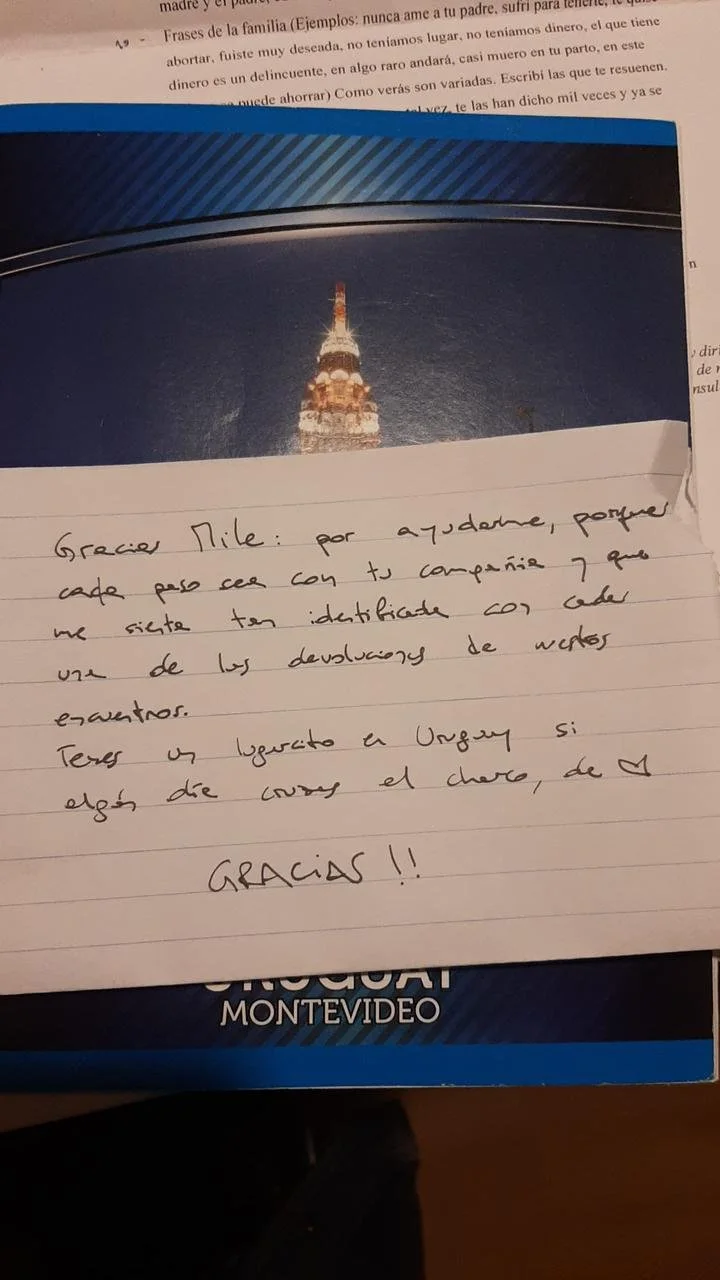 madre y el padre, 
19 - Frases de la familia (Ejemplos: nunca ame a tu padre, sufrí para tenerte, te quise
abortar, fuiste muy deseada, no teníamos lugar, no teníamos dinero, el que tiene
dinero es un delincuente, en algo raro andará, casi muero en tu parto, en este
puede ahorrar) Como verás son variadas. Escribí las que te resuenen.
tal vez, te las han dicho mil veces y ya se
n
diri
de
nsul
Gracias Mile: por ayudarme, porque
cada paso sea con tu compañia y que
me sienta tan identificada con cada
una de las devoluciones de nuestros
encuentros.
Tenes un lugarcito en Uruguay si
algún día cruzas el charco, de ♡
GRACIAS !!
URUGUAY
MONTEVIDEO